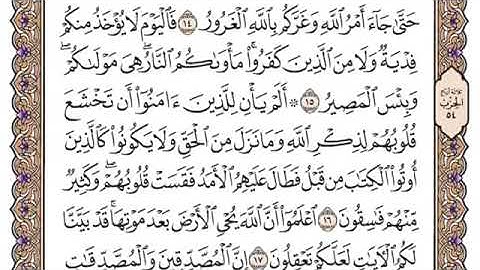 حَتَّىٰ جَآءَ أَمْرُ ٱللَّهِ وَغَرَّكُم بِٱللَّهِ ٱلْغَرُورُ ١٤ فَٱلْيَوْمَ لَا يُؤْخَذُ مِنكُمْ
فِدْيَةٌ وَلَا مِنَ ٱلَّذِينَ كَفَرُوا۟ ۚ مَأْوَىٰكُمُ ٱلنَّارُ ۖ هِىَ مَوْلَىٰكُمْ ۖ
وَبِئْسَ ٱلْمَصِيرُ ١٥ ۞ أَلَمْ يَأْنِ لِلَّذِينَ ءَامَنُوٓا۟ أَن تَخْشَعَ
قُلُوبُهُمْ لِذِكْرِ ٱللَّهِ وَمَا نَزَلَ مِنَ ٱلْحَقِّ وَلَا يَكُونُوا۟ كَٱلَّذِينَ
أُوتُوا۟ ٱلْكِتَٰبَ مِن قَبْلُ فَطَالَ عَلَيْهِمُ ٱلْأَمَدُ فَقَسَتْ قُلُوبُهُمْ ۖ وَكَثِيرٌ
مِّنْهُمْ فَٰسِقُونَ ١٦ ٱعْلَمُوٓا۟ أَنَّ ٱللَّهَ يُحْىِ ٱلْأَرْضَ بَعْدَ مَوْتِهَا ۚ قَدْ بَيَّنَّا
لَكُمُ ٱلْءَايَٰتِ لَعَلَّكُمْ تَعْقِلُونَ ١٧ إِنَّ ٱلْمُصَّدِّقِينَ وَٱلْمُصَّدِّقَٰتِ
الحزب
٥٤